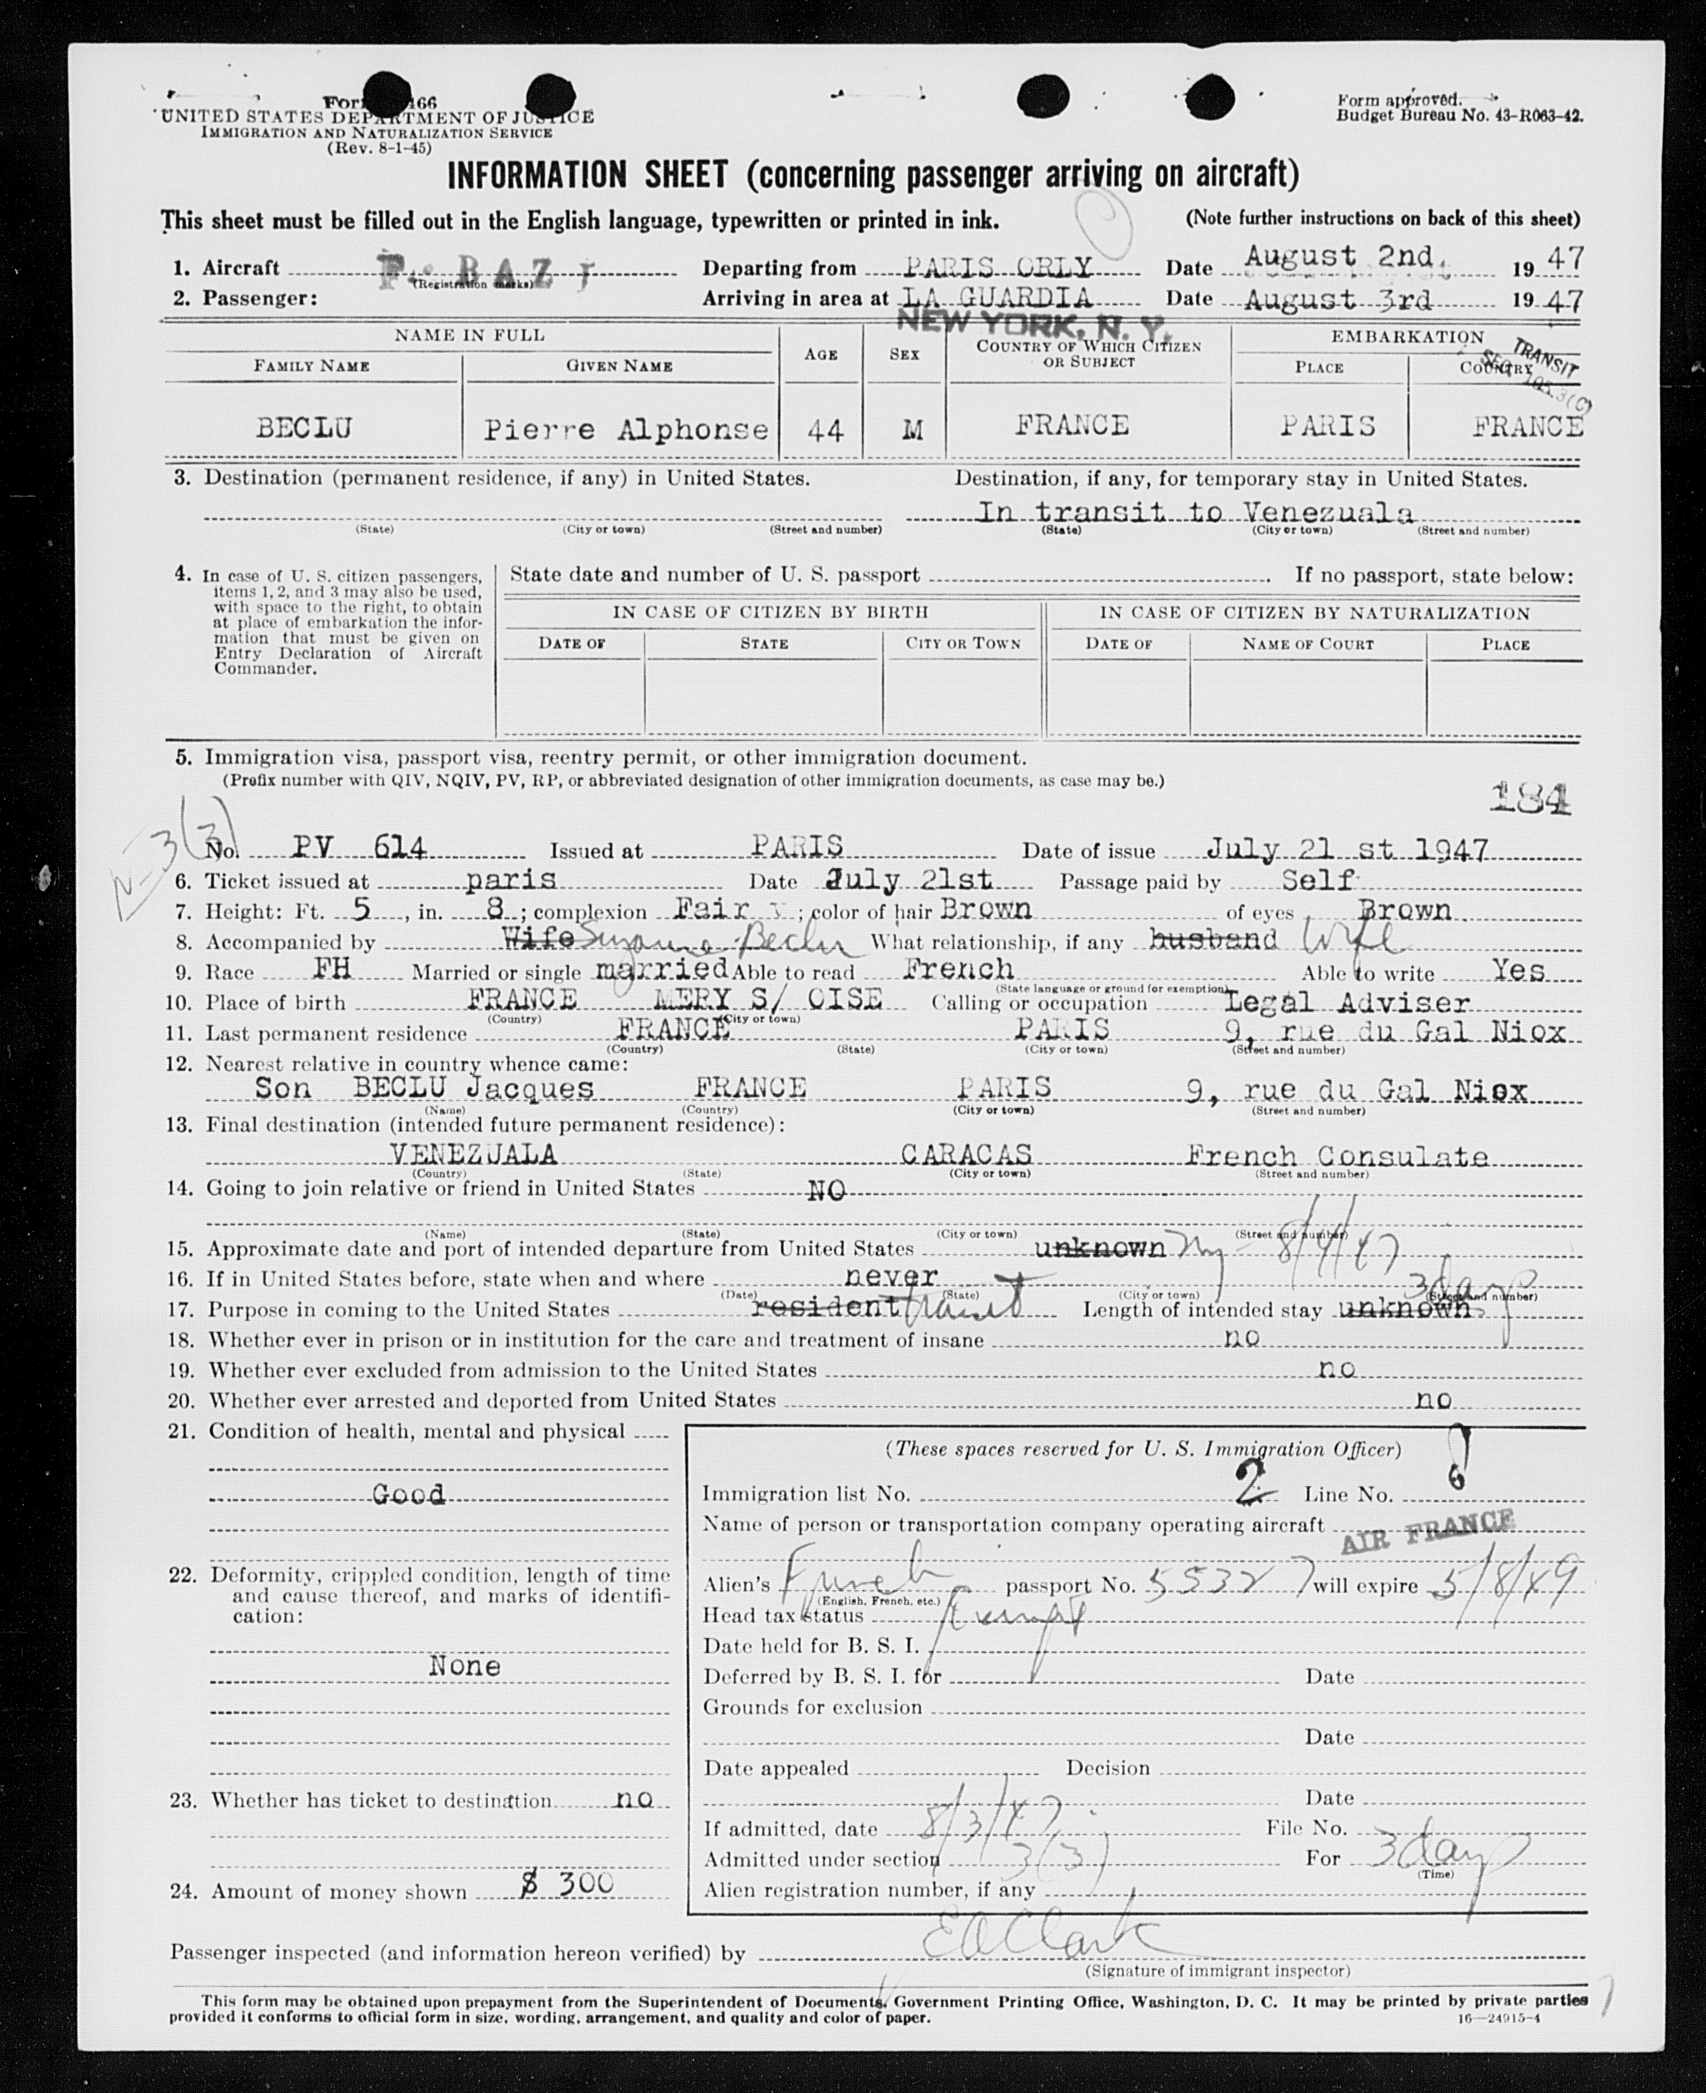 For 466
UNITED STATES DEPARTMENT OF JUSTICE
IMMIGRATION AND NATURALIZATION SERVICE
(Rev. 8-1-45)
Form approved.
Budget Bureau No. 43-R063-42.
INFORMATION SHEET (concerning passenger arriving on aircraft)
This sheet must be filled out in the English language, typewritten or printed in ink. (Note further instructions on back of this sheet)
1. Aircraft F. BAZ (Registration marks) Departing from PARIS ORLY Date August 2nd, 1947
2. Passenger: Arriving in area at LA GUARDIA Date August 3rd 1947
NEW YORK, N. Y.
NAME IN FULL AGE SEX COUNTRY OF WHICH CITIZEN OR SUBJECT EMBARKATION
TRANSIT
SEC. 105.3(C)
FAMILY NAME GIVEN NAME PLACE COUNTRY
BECLU Pierre Alphonse 44 M FRANCE PARIS FRANCE
3. Destination (permanent residence, if any) in United States. Destination, if any, for temporary stay in United States.
In transit to Venezuala
(State) (City or town) (Street and number) (State) (City or town) (Street and number)
4. In case of U. S. citizen passengers, items 1, 2, and 3 may also be used, with space to the right, to obtain at place of embarkation the information that must be given on Entry Declaration of Aircraft Commander.
State date and number of U. S. passport . If no passport, state below:
IN CASE OF CITIZEN BY BIRTH IN CASE OF CITIZEN BY NATURALIZATION
DATE OF STATE CITY OR TOWN DATE OF NAME OF COURT PLACE
5. Immigration visa, passport visa, reentry permit, or other immigration document.
(Prefix number with QIV, NQIV, PV, RP, or abbreviated designation of other immigration documents, as case may be.)
184
3(3)
No. PV 614 Issued at PARIS Date of issue July 21 st 1947
6. Ticket issued at paris Date July 21st Passage paid by Self
7. Height: Ft. 5, in. 8; complexion Fair; color of hair Brown of eyes Brown
8. Accompanied by Wife Suzanne Beclu What relationship, if any husband Wife
9. Race FH Married or single married Able to read French Able to write Yes
(State language or ground for exemption)
10. Place of birth FRANCE MERY S/ OISE Calling or occupation Legal Adviser
(Country) (City or town)
11. Last permanent residence FRANCE PARIS 9, rue du Gal Niox
(Country) (State) (City or town) (Street and number)
12. Nearest relative in country whence came:
Son BECLU Jacques FRANCE PARIS 9, rue du Gal Niox
(Name) (Country) (City or town) (Street and number)
13. Final destination (intended future permanent residence):
VENEZUALA CARACAS French Consulate
(Country) (State) (City or town) (Street and number)
14. Going to join relative or friend in United States NO
(Name) (State) (City or town) (Street and number)
15. Approximate date and port of intended departure from United States unknown Ny - 8/4/47
16. If in United States before, state when and where never
(Date) (State) (City or town) (Street and number)
17. Purpose in coming to the United States resident Transit Length of intended stay unknown 3 days
18. Whether ever in prison or in institution for the care and treatment of insane no
19. Whether ever excluded from admission to the United States no
20. Whether ever arrested and deported from United States no
21. Condition of health, mental and physical
Good
22. Deformity, crippled condition, length of time and cause thereof, and marks of identification:
None
23. Whether has ticket to destination no
24. Amount of money shown $ 300
(These spaces reserved for U. S. Immigration Officer)
Immigration list No. 2 Line No. 8
Name of person or transportation company operating aircraft AIR FRANCE
Alien's French passport No. 55327 will expire 5/8/49
(English, French, etc.)
Head tax status Exempt
Date held for B. S. I.
Deferred by B. S. I. for Date
Grounds for exclusion
Date
Date appealed Decision
Date
If admitted, date 8/3/47 File No.
Admitted under section 3(3) For 3 days
(Time)
Alien registration number, if any
Passenger inspected (and information hereon verified) by E A Clark
(Signature of immigrant inspector)
This form may be obtained upon prepayment from the Superintendent of Documents, Government Printing Office, Washington, D. C. It may be printed by private parties
provided it conforms to official form in size, wording, arrangement, and quality and color of paper. 16—24915-4